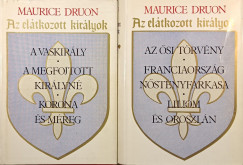 MAURICE DRUON
Az elátkozott királyok
A VASKIRÁLY
A MEGFOJTOTT
KIRÁLYNÉ
KORONA
ÉS MÉREG
MAURICE DRUON
Az elátkozott királyok
AZ ŐSI TÖRVÉNY
FRANCIAORSZÁG
NŐSTÉNYFARKASA
LILIOM
ÉS OROSZLÁN